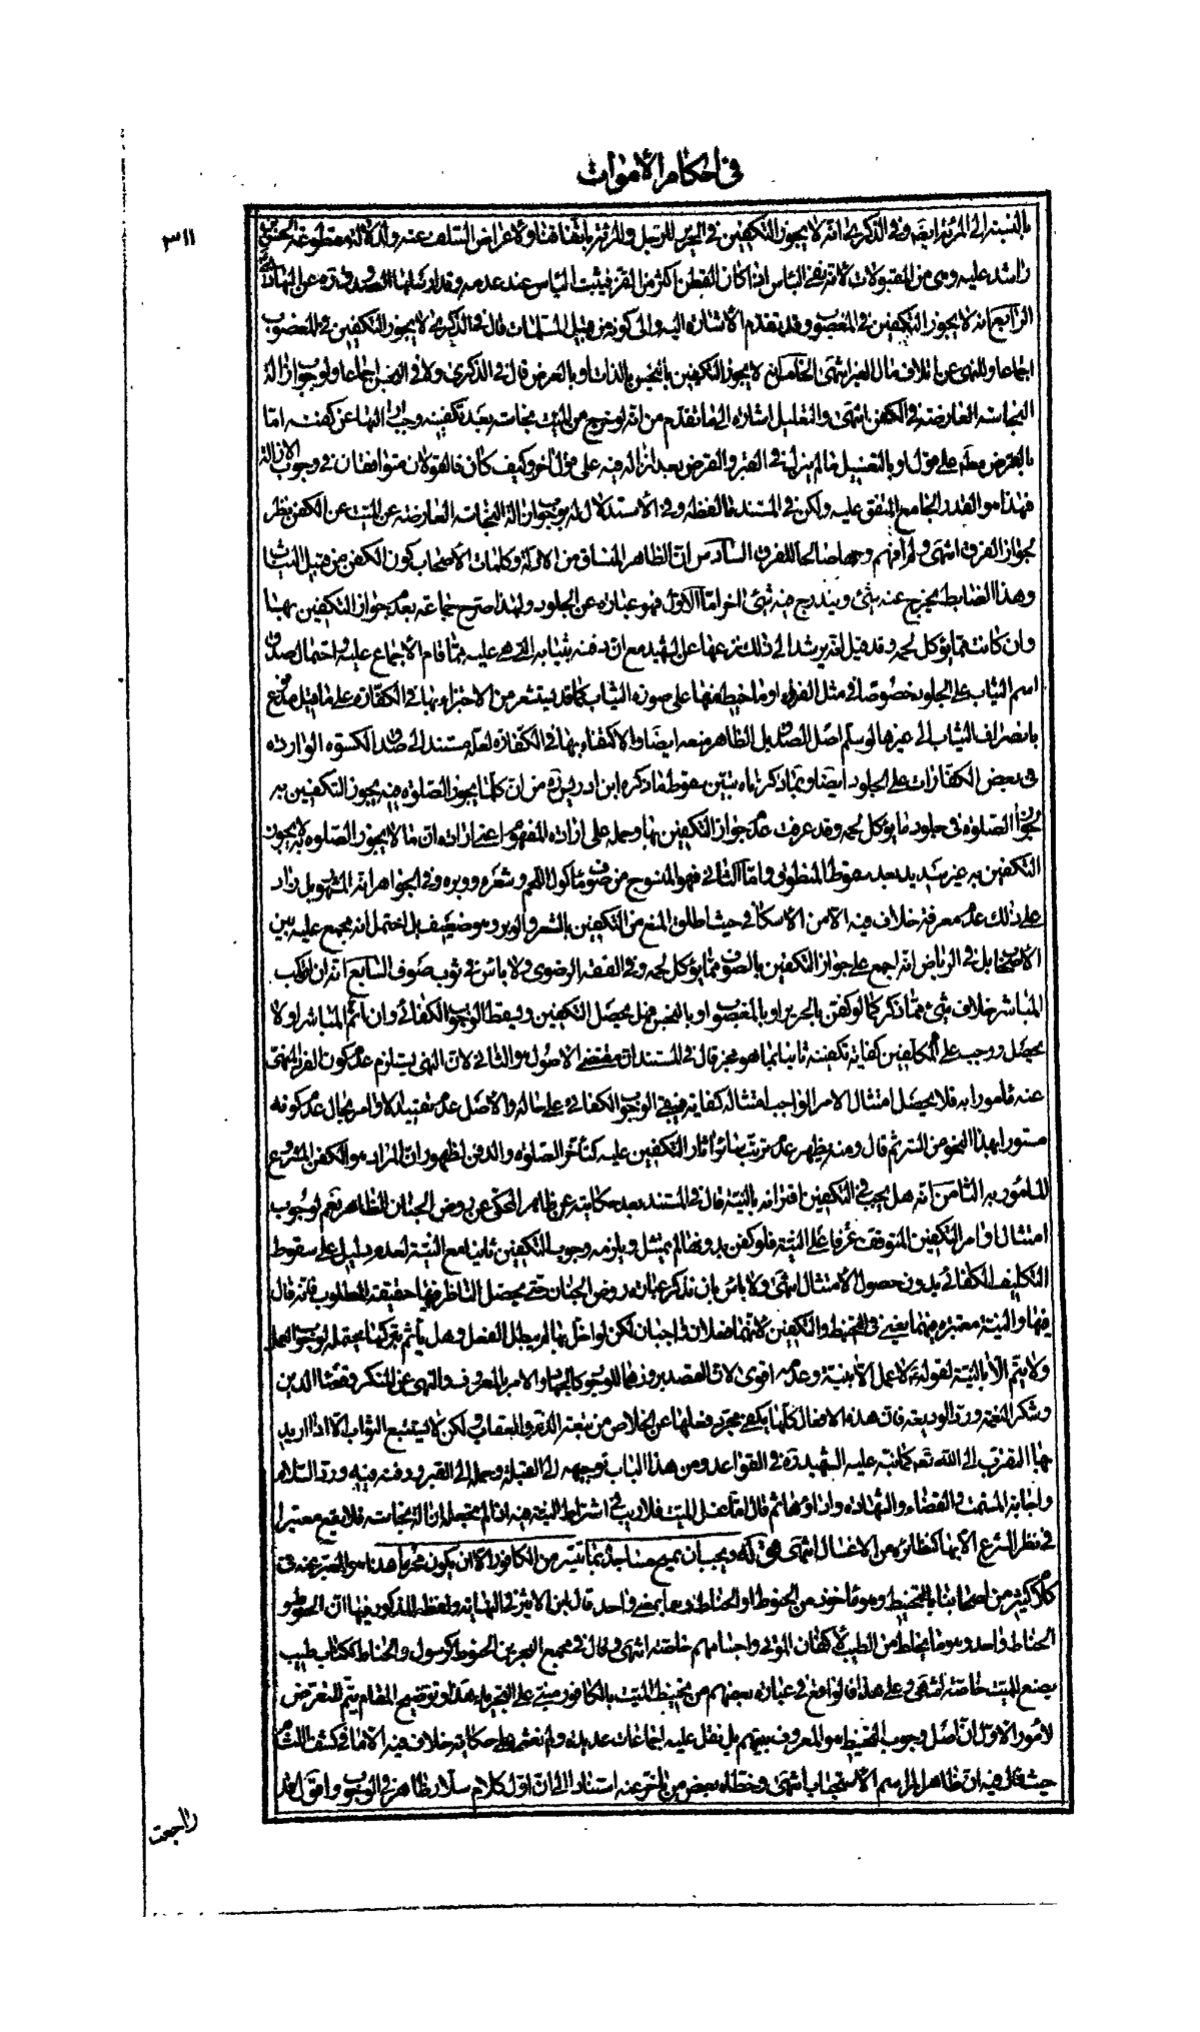 في احكام الأموات
٣١١
بالنسبة الى المرئة ايضا وفي الذكرى انه لا يجوز التكفين في الحرير للرجل والمرئة باتفاقنا ولاعراض السلف عنه ولدلالة مقطوعة الحسن بن
راشد عليه وهي من المقبولات لانه نفى البأس اذا كان القطن اكثر من القز فيثبت البأس عند عدمه وقد ارسلها الصدوق ره عن الهادي
الرابع انه لا يجوز التكفين في المغصوب وقد تقدم الأشارة اليه والى كونه من قبيل المسلمات قال في الذكرى لا يجوز التكفين في المغصوب
اجماعا وللنهى عن اتلاف مال الغير انتهى الخامس انه لا يجوز التكفين بالنجس بالذات او بالعرض قال في الذكرى ولا في النجس اجماعا ولوجوب ازالة
النجاسة العارضة في الكفن انتهى والتعليل اشارة الى ما تقدم من انه لو خرج من الميت نجاسة بعد تكفينه وجب ازالتها عن كفنه اما
بالقرض مطلقا على قول او بالتغسيل ما لم ينزل في القبر والقرض بعد انزاله فيه على قول اخر وكيف كان فالقولان متوافقان في وجوب الازالة
فهذا هو القدر الجامع المتفق عليه ولكن في المستند ما لفظه وفي الأستدلال له بوجوب ازالة النجاسة العارضة عن الميت عن الكفن نظر
لجواز الفرق انتهى ولم افهم وجها صالحا للفرق السادس ان الظاهر المنساق من الادلة وكلمات الأصحاب كون الكفن من قبيل الثياب
وهذا الضابط يخرج عنه شئ ويندرج فيه شئ اخر اما الاول فهو عبارة عن الجلود ولهذا صرح جماعة بعدم جواز التكفين بها
وان كانت مما يؤكل لحمه وقد قيل انه يرشد الى ذلك نزعها عن الشهيد مع ان دفنه بثيابه التي هي عليه مما قام الأجماع عليه واحتمال صدق
اسم الثياب على الجلود خصوصا في مثل الفراء او ما خيط منها على صورة الثياب كما قد يستشعر من الاجتزاء بها في الكفارة على ما قيل مدفوع
بانصراف الثياب الى غيرها لو سلم اصل الصدق بل الظاهر منعه ايضا والاكتفاء بها في الكفارة لعله مستند الى صدق الكسوة الواردة
في بعض الكفارات على الجلود ايضا وبما ذكرناه يتبين سقوط ما ذكره ابن ادريس ره من ان كلما يجوز الصلوة فيه يجوز التكفين به
لجواز الصلوة في جلود ما يؤكل لحمه وقد عرفت عدم جواز التكفين بها وحمله على ارادة المفهوم اعني ارادة ان ما لا يجوز الصلوة به لا يجوز
التكفين به غير سديد بعد سقوط المنطوق واما الثاني فهو المنسوج من صوف مأكول اللحم وشعره ووبره وفي الجواهر انه المشهور بل زاد
على ذلك عدم معرفة خلاف فيه الا من الاسكافي حيث اطلق المنع من التكفين بالشعر والوبر وهو ضعيف بل احتمل انه مجمع عليه بين
الأصحاب بل في الرياض انه اجمع على جواز التكفين بالصوف مما يؤكل لحمه وفي الفقه الرضوى ولا باس في ثوب صوف السابع انه ان ارتكب
المباشر خلاف شئ مما ذكر كما لو كفن بالحرير او بالمغصوب او بالنجس فهل يحصل التكفين ويسقط الوجوب الكفائي وان اثم المباشر او لا
يحصل ووجب على المكلفين كفاية تكفينه ثانيا بما هو مجز قال في المستند ان مقتضى الاصول هو الثاني لان النهى يستلزم عدم كون الفرد المنهى
عنه مأمورا به فلا يحصل امتثال الامر الواجب امتثاله كفاية فيبقى الوجوب الكفائي على حاله والأصل عدم تقييد الاوامر بحال عدم كونه
مستورا بهذا النحو من الستر ثم قال ومنه يظهر عدم ترتب سائر اثار التكفين عليه كتأخر الصلوة والدفن لظهور ان المراد هو الكفن المشروع
المامور به الثامن انه هل يجب في التكفين اقترانه بالنية قال في المستند بعد حكايته عن ظاهر المحكى عن روض الجنان الظاهر نعم لوجوب
امتثال اوامر التكفين المتوقف عرفا على النية فلو كفن بدونها لم يمتثل ويلزمه وجوب التكفين ثانيا مع النية لعدم دليل على سقوط
التكليف الكفائي بدون حصول الأمتثال انتهى ولا بأس بان نذكر عبارة روض الجنان حتى يحصل الناظر فيها حقيقة المطلوب فانه قال
فيها والنية معتبرة فيهما يعنى في التحنيط والتكفين لانهما فعلان واجبان لكن لو اخل بها لم يبطل الفعل وهل يأثم بتركها يحتمله لوجوب العمل
ولا يتم الا بالنية لقوله ع لا عمل الا بنية وعدمه اقوى لان القصد بروزهما للوجود كالجهاد والامر بالمعروف والنهى عن المنكر وقضاء الدين
وشكر النعمة ورد الوديعة فان هذه الافعال كلها يكفى مجرد فعلها عن الخلاص من تبعة الذم والعقاب ولكن لا يستتبع الثواب الا اذا اريد
بها التقرب الى الله تعه كما نبه عليه الشهيد ره في القواعد ومن هذا الباب توجيهه الى القبلة وحمله الى القبر ودفنه فيه ورد السلام
واجابة المسمت والقضاء والشهادة واداؤها ثم قال اما غسل الميت فلا ريب في اشتراط النية فيه اذا لم نجعله ازالة نجاسة فلا يقع معتبرا
في نظر الشرع الا بها كنظائره من الاغسال انتهى قوله ويجب ان يمسح مساجده بما تيسر من الكافور الا ان يكون محرما هذا هو المعبر عنه في
كلام كثير من اصحابنا بالتحنيط وهو مأخوذ من الحنوط او الحناط وهما بمعنى واحد قال ابن الاثير في النهاية ولفظه المذكور فيها ان الحنوط و
الحناط واحد وهو ما يخلط من الطيب لأكفان الموتى واجسامهم خاصة انتهى وقال في مجمع البحرين الحنوط كرسول والحناط ككتاب طيب
يصنع للميت خاصة انتهى وعلى هذا فالواقع في عبارة بعضهم من تحنيط الميت بالكافور مبنى على التجريد هذا وتوضيح المقام يتم بالتعرض
لأمور الأول ان اصل وجوب التحنيط هو المعروف بينهم بل نقل عليه اجماعات عديدة ولم نعثر على حكاية خلاف فيه الا ما في كشف اللثام
حيث قال فيه ان ظاهر المراسم الأستحباب انتهى وخطاه بعض من تاخر عنه استنادا الى ان اول كلام سلار ظاهر في الوجوب وافق لغد
راجعت